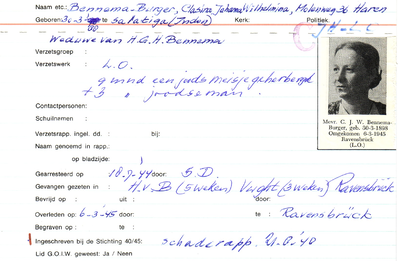 Naam etc.: Bennema-Burger, Clasina Johanna Wilhelmina, Molenweg 36 Haren
Geboren: 30-3- te: Salatiga (Indën) Kerk: Politiek.
98
Weduwe van H.G.H. Bennema
Verzetsgroep :
Verzetswerk : L.O.
9 mnd een joods meisje geherbergd
+ 3 " joodse man.
Contactpersonen:
Schuilnamen :
Verzetsrapp. ingel. dd. : bij:
Naam genoemd in rapp.
op bladzijde:
Gearresteerd op : 18-7-44 door: S.D.
Gevangen gezeten in : H.v.B (5 weken) Vught (3 weken) Ravensbrück
Bevrijd op : uit : door:
Overleden op : 6-3-45 door: te : Ravensbrück
Begraven op : te :
Ingeschreven bij de Stichting 40/45: schaderapp.
Lid G.O.I.W. geweest: Ja / Neen
Mevr. C. J. W. Bennema-
Burger, geb. 30-3-1898
Omgekomen 6-3-1945
Ravensbrück
(L.O.)